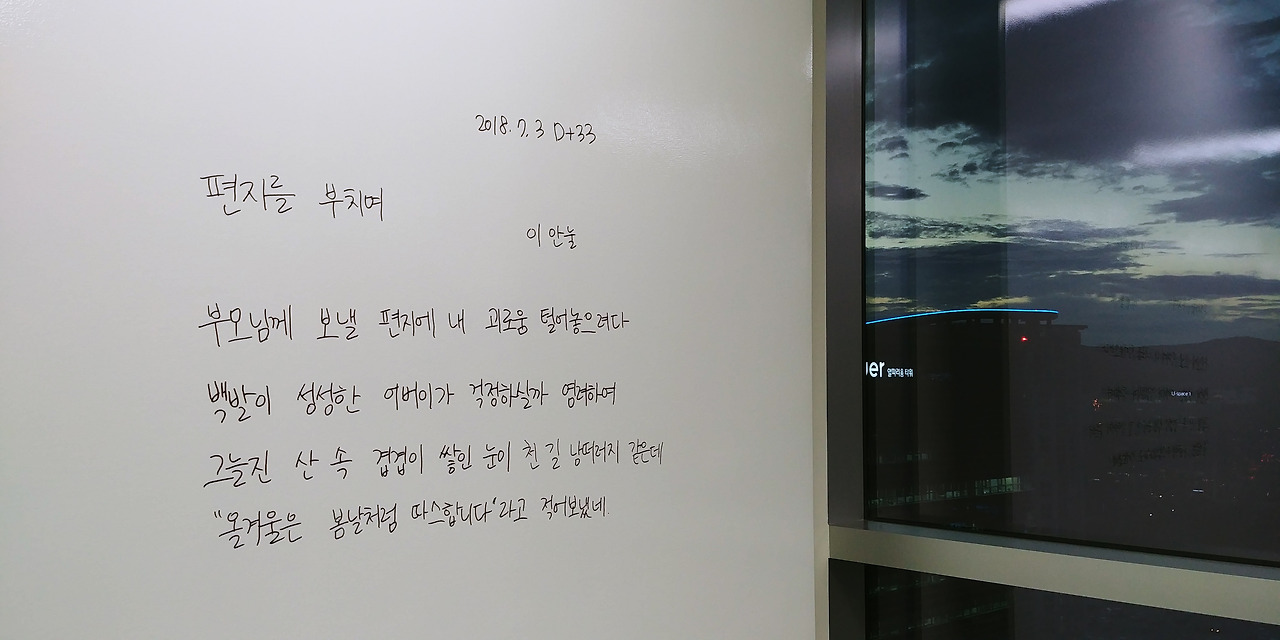 2018. 7. 3 D+33
편지를 부치며
이안눌
부모님께 보낼 편지에 내 괴로움 털어놓으려다
백발이 성성한 어버이가 걱정하실까 염려하여
그늘진 산 속 겹겹이 쌓인 눈이 천 길 낭떠러지 같은데
"올겨울은 봄날처럼 따스합니다"라고 적어보냈네.
er 알파리움 타워
U-space 1